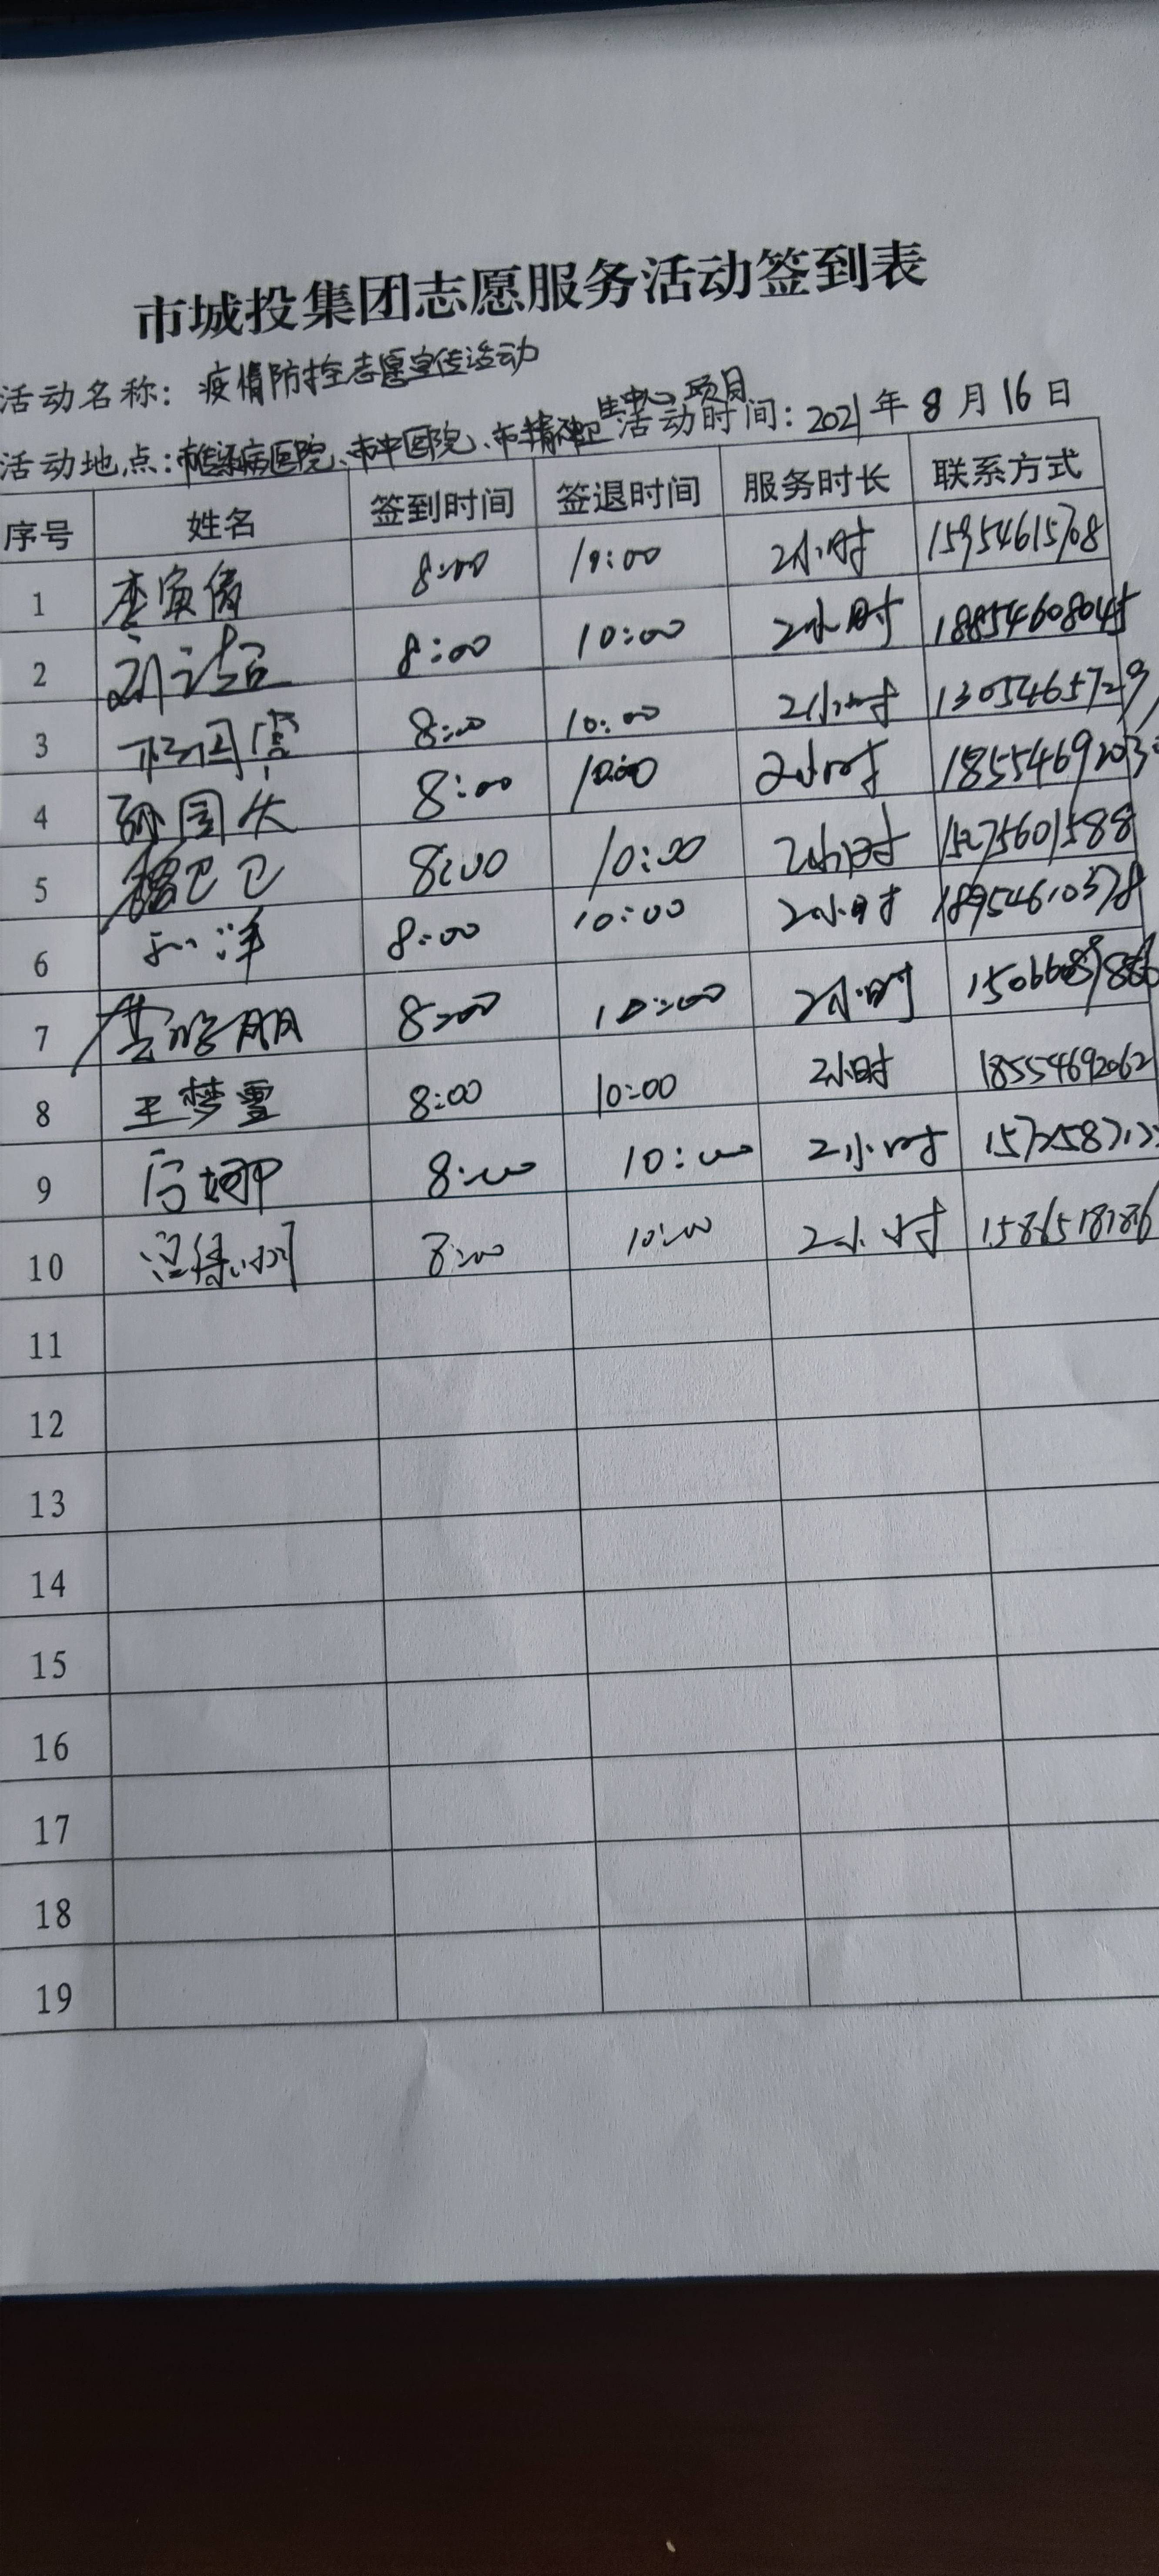 市城投集团志愿服务活动签到表
活动名称：疫情防控志愿宣传活动
活动地点：市传染病医院、市中医院、市精神卫生中心项目 活动时间：2021年8月16日
序号 姓名 签到时间 签退时间 服务时长 联系方式
1 8:00 10:00 2小时 15954615708
2 8:00 10:00 2小时 18854608045
3 8:00 10:00 2小时
4 孙国庆 8:00 10:00 2小时
5 8:00 10:00 2小时 15275601588
6 孙洋 8:00 10:00 2小时 18954610378
7 8:00 10:00 2小时
8 王梦雪 8:00 10:00 2小时 18554692062
9 8:00 10:00 2小时
10 8:00 10:00 2小时
11
12
13
14
15
16
17
18
19